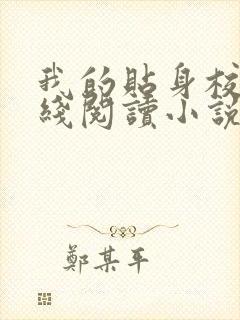 我的貼身校
綫閱讀小說
鄭某平